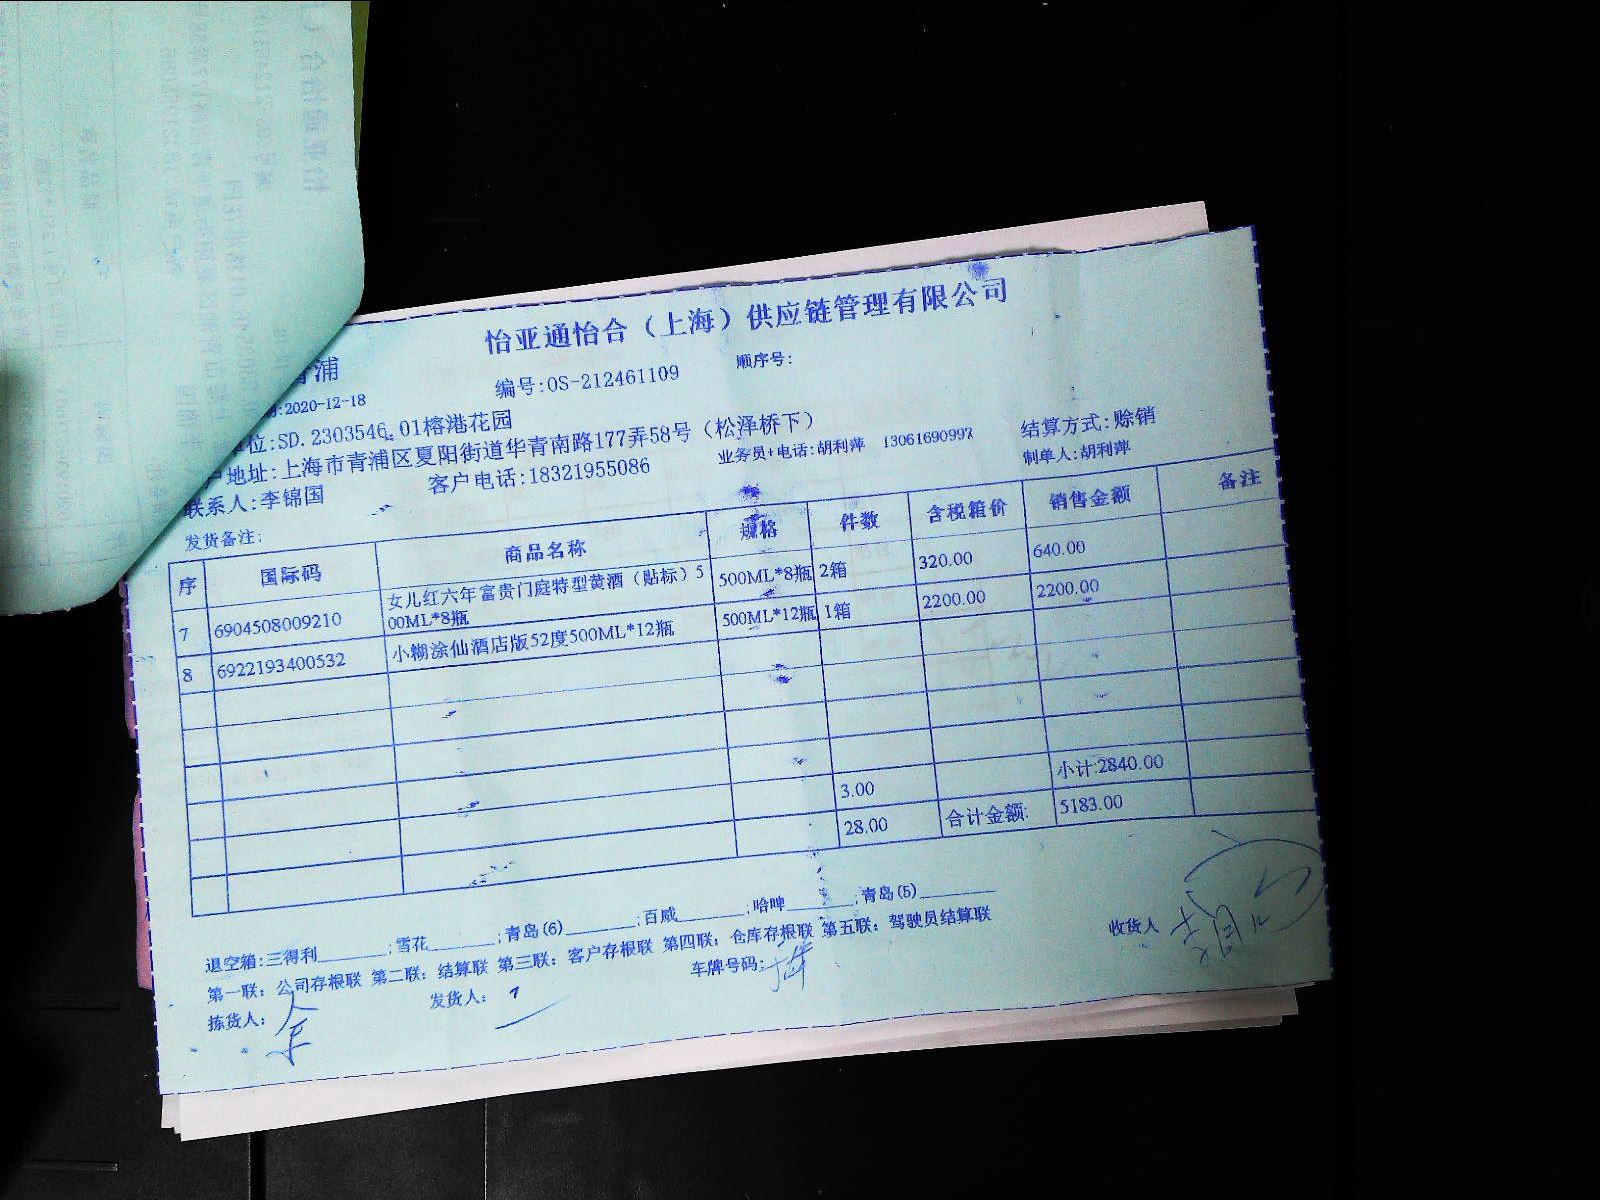 怡亚通怡合（上海）供应链管理有限公司
青浦
编号:OS-212461109
顺序号:
期:2020-12-18
位:SD.2303546.01榕港花园
户地址:上海市青浦区夏阳街道华青南路177弄58号（松泽桥下）
结算方式:赊销
联系人:李锦国
客户电话:18321955086
业务员+电话:胡利萍 13061690997
制单人:胡利萍
发货备注:
序 国际码 商品名称 规格 件数 含税箱价 销售金额 备注
7 6904508009210 女儿红六年富贵门庭特型黄酒（贴标）5 500ML*8瓶 2箱 320.00 640.00
00ML*8瓶
8 6922193400532 小糊涂仙酒店版52度500ML*12瓶 500ML*12瓶 1箱 2200.00 2200.00
3.00 小计:2840.00
28.00 合计金额: 5183.00
退空箱:三得利_______;雪花_______;青岛(6)_______;百威_______;哈啤_______;青岛(5)_______
第一联：公司存根联 第二联：结算联 第三联：客户存根联 第四联：仓库存根联 第五联：驾驶员结算联
拣货人：
发货人：
车牌号码:
收货人